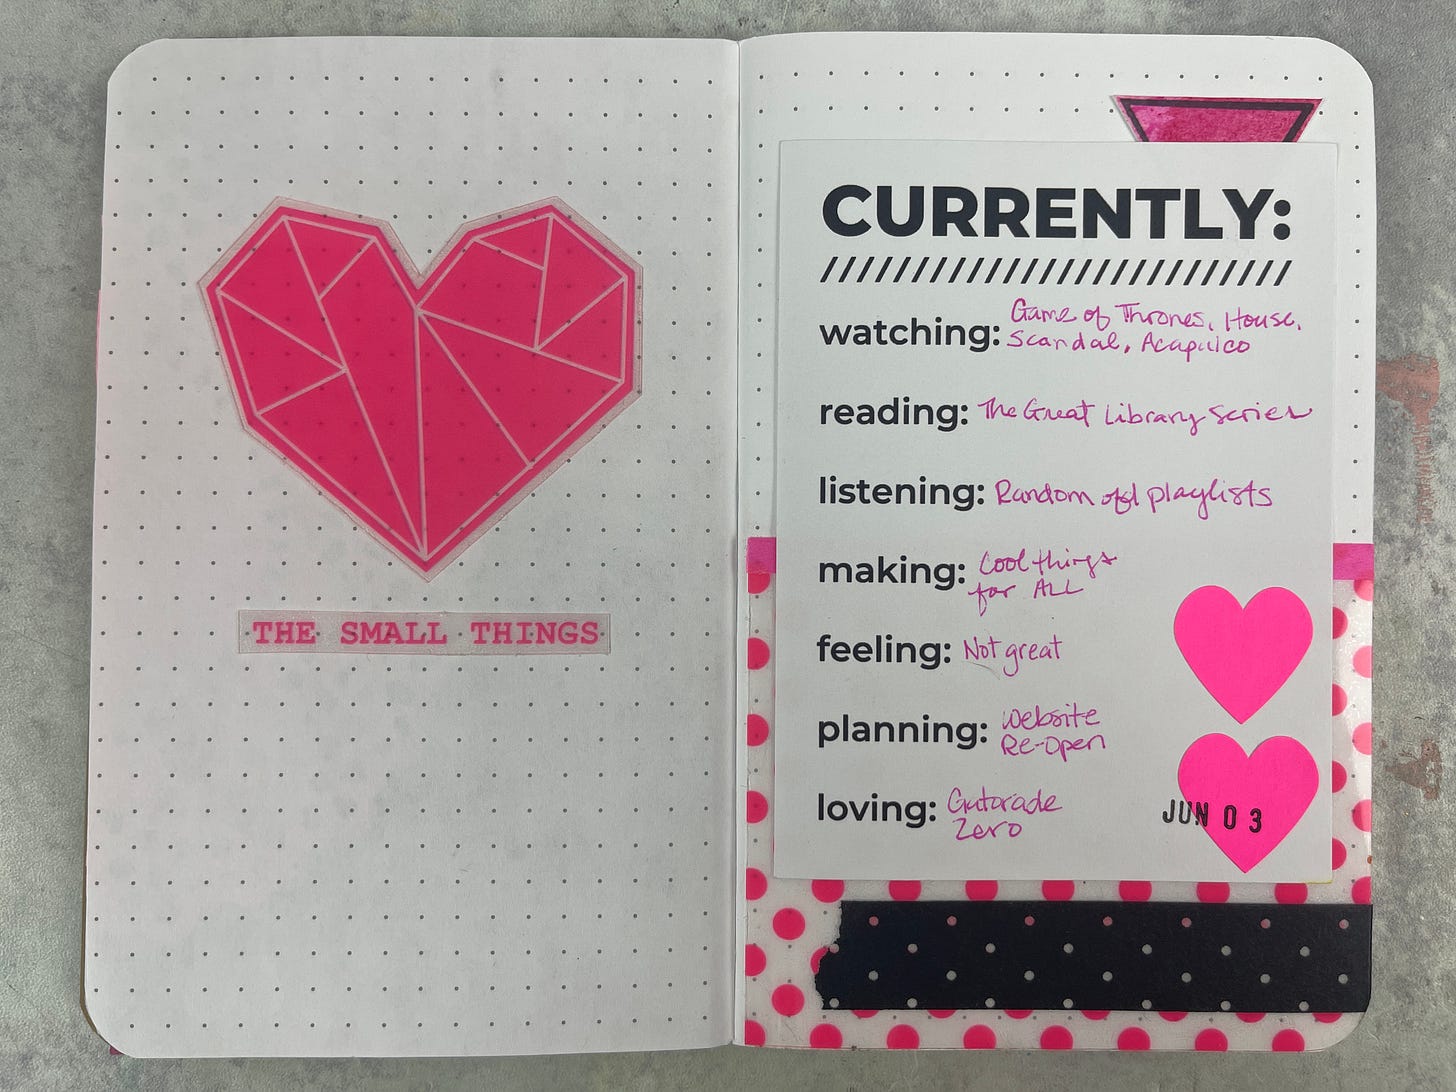 THE SMALL THINGS
CURRENTLY:
watching: Game of Thrones, House,
Scandal, Acapulco
reading: The Great Library Series
listening: Random playlists
making: Cool things
for ALL
feeling: Not great
planning: Website
Re-Open
loving: Gatorade
Zero
JUN 03